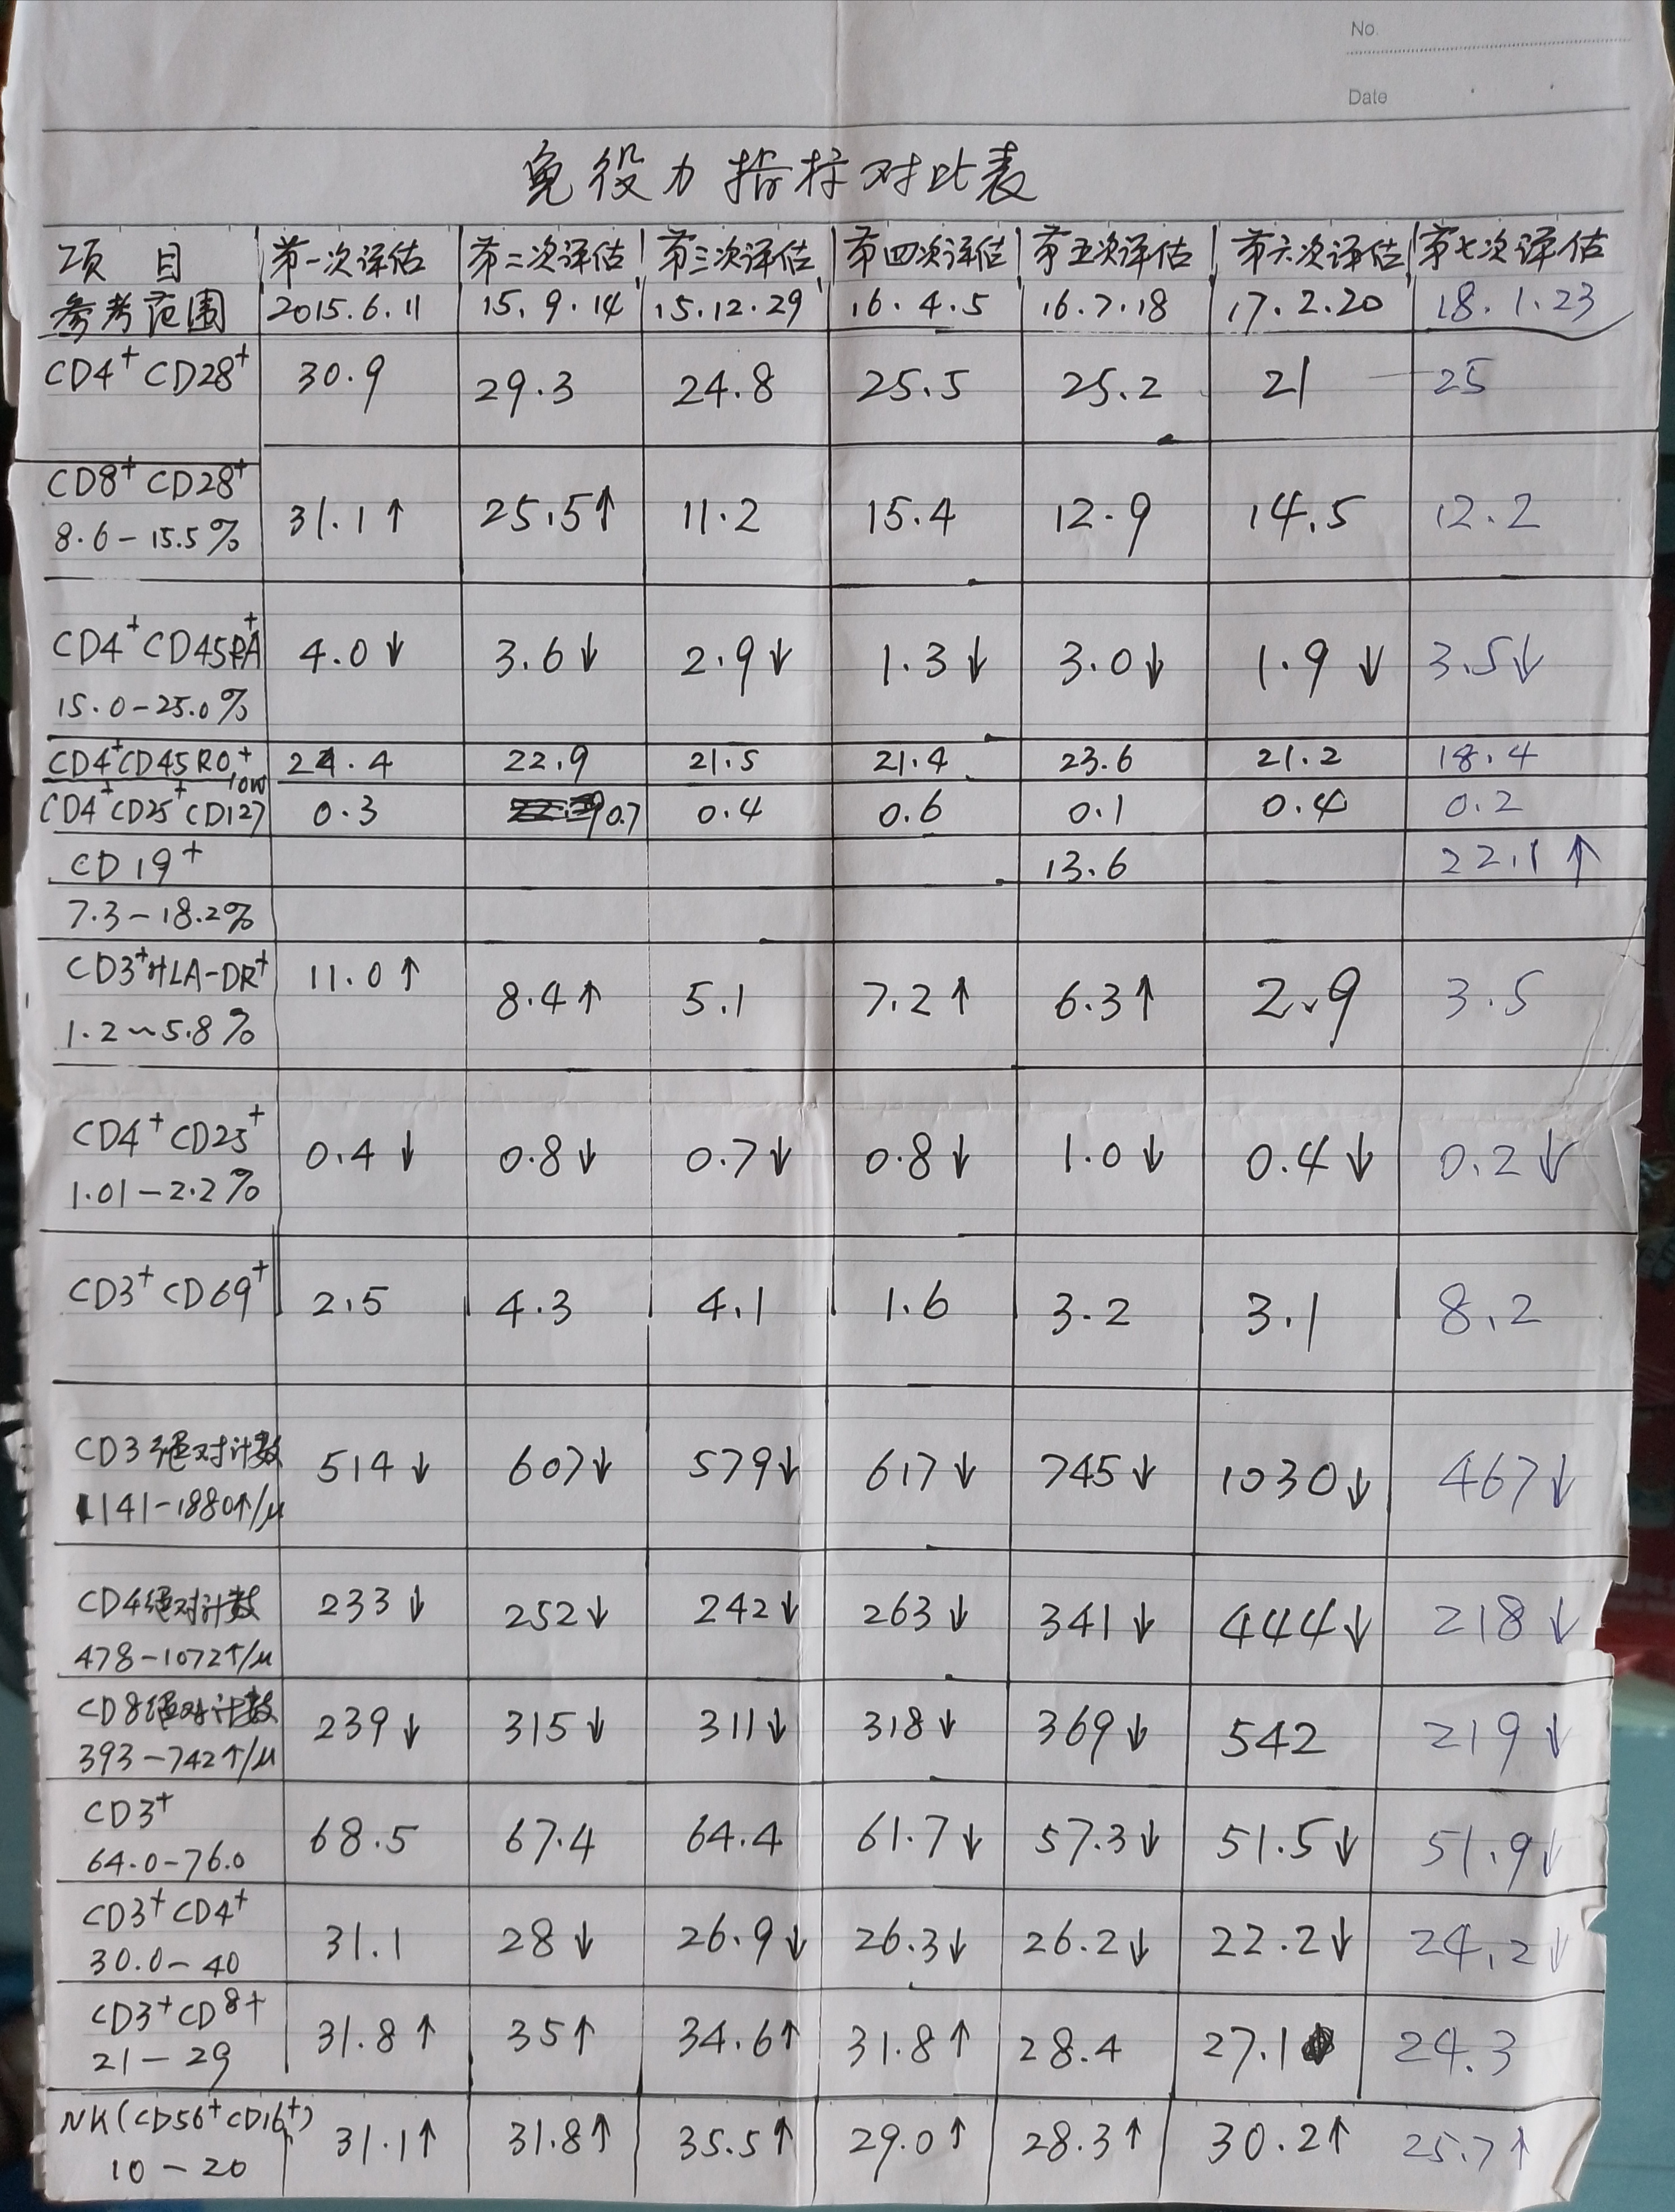 No.
Date
免役力指标对比表
项目 第一次评估 第二次评估 第三次评估 第四次评估 第五次评估 第六次评估 第七次评估
参考范围 2015.6.11 15.9.14 15.12.29 16.4.5 16.7.18 17.2.20 18.1.23
CD4⁺CD28⁺ 30.9 29.3 24.8 25.5 25.2 21 25
CD8⁺CD28⁺
8.6-15.5% 31.1↑ 25.5↑ 11.2 15.4 12.9 14.5 12.2
CD4⁺CD45RA⁺ 4.0↓ 3.6↓ 2.9↓ 1.3↓ 3.0↓ 1.9↓ 3.5↓
15.0-25.0%
CD4⁺CD45RO⁺ 24.4 22.9 21.5 21.4 23.6 21.2 18.4
CD4⁺CD25⁺CD127low 0.3 0.7 0.4 0.6 0.1 0.4 0.2
CD19⁺ 13.6 22.1↑
7.3-18.2%
CD3⁺HLA-DR⁺ 11.0↑ 8.4↑ 5.1 7.2↑ 6.3↑ 2.9 3.5
1.2~5.8%
CD4⁺CD25⁺ 0.4↓ 0.8↓ 0.7↓ 0.8↓ 1.0↓ 0.4↓ 0.2↓
1.01-2.2%
CD3⁺CD69⁺ 2.5 4.3 4.1 1.6 3.2 3.1 8.2
CD3绝对计数 514↓ 607↓ 579↓ 617↓ 745↓ 1030↓ 467↓
1141-1880个/μ
CD4绝对计数 233↓ 252↓ 242↓ 263↓ 341↓ 444↓ 218↓
478-1072个/μ
CD8绝对计数 239↓ 315↓ 311↓ 318↓ 369↓ 542 219↓
393-742个/μ
CD3⁺ 68.5 67.4 64.4 61.7↓ 57.3↓ 51.5↓ 51.9↓
64.0-76.0
CD3⁺CD4⁺ 31.1 28↓ 26.9↓ 26.3↓ 26.2↓ 22.2↓ 24.2↓
30.0-40
CD3⁺CD8+ 31.8↑ 35↑ 34.6↑ 31.8↑ 28.4 27.1 24.3
21-29
NK(CD56⁺CD16⁺) 31.1↑ 31.8↑ 35.5↑ 29.0↑ 28.3↑ 30.2↑ 25.7↑
10-20